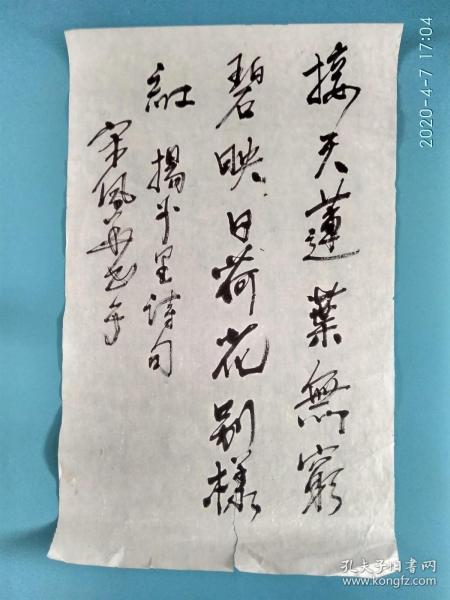 接天蓮葉無窮
碧映日荷花别樣
紅 揚斗里詩句
宋佩
2020-4-7 17:04
孔夫子旧书网
www.kongfz.com